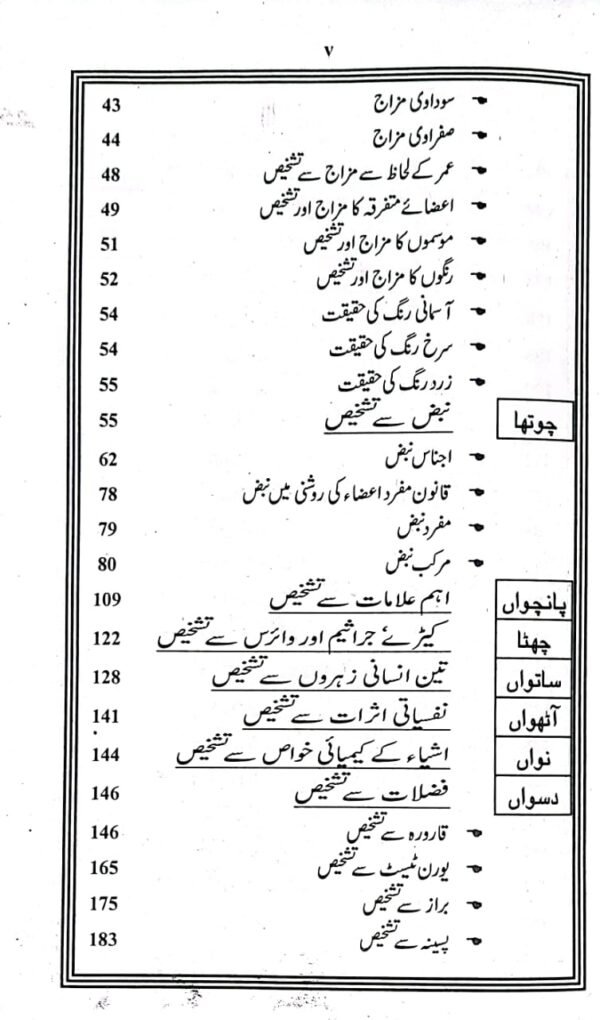 ۷
سوداوی مزاج 43
صفراوی مزاج 44
عمر کے لحاظ سے مزاج سے تشخیص 48
اعضائے متفرقہ کا مزاج اور تشخیص 49
موسموں کا مزاج اور تشخیص 51
رنگوں کا مزاج اور تشخیص 52
آسمانی رنگ کی حقیقت 54
سرخ رنگ کی حقیقت 54
زرد رنگ کی حقیقت 55
چوتھا نبض سے تشخیص 55
اجناس نبض 62
قانون مفرد اعضاء کی روشنی میں نبض 78
مفرد نبض 79
مرکب نبض 80
پانچواں اہم علامات سے تشخیص 109
چھٹا کیڑے' جراثیم اور وائرس سے تشخیص 122
ساتواں تین انسانی زہروں سے تشخیص 128
آٹھواں نفسیاتی اثرات سے تشخیص 141
نواں اشیاء کے کیمیائی خواص سے تشخیص 144
دسواں فضلات سے تشخیص 146
قارورہ سے تشخیص 146
یورن ٹیسٹ سے تشخیص 165
براز سے تشخیص 175
پسینہ سے تشخیص 183